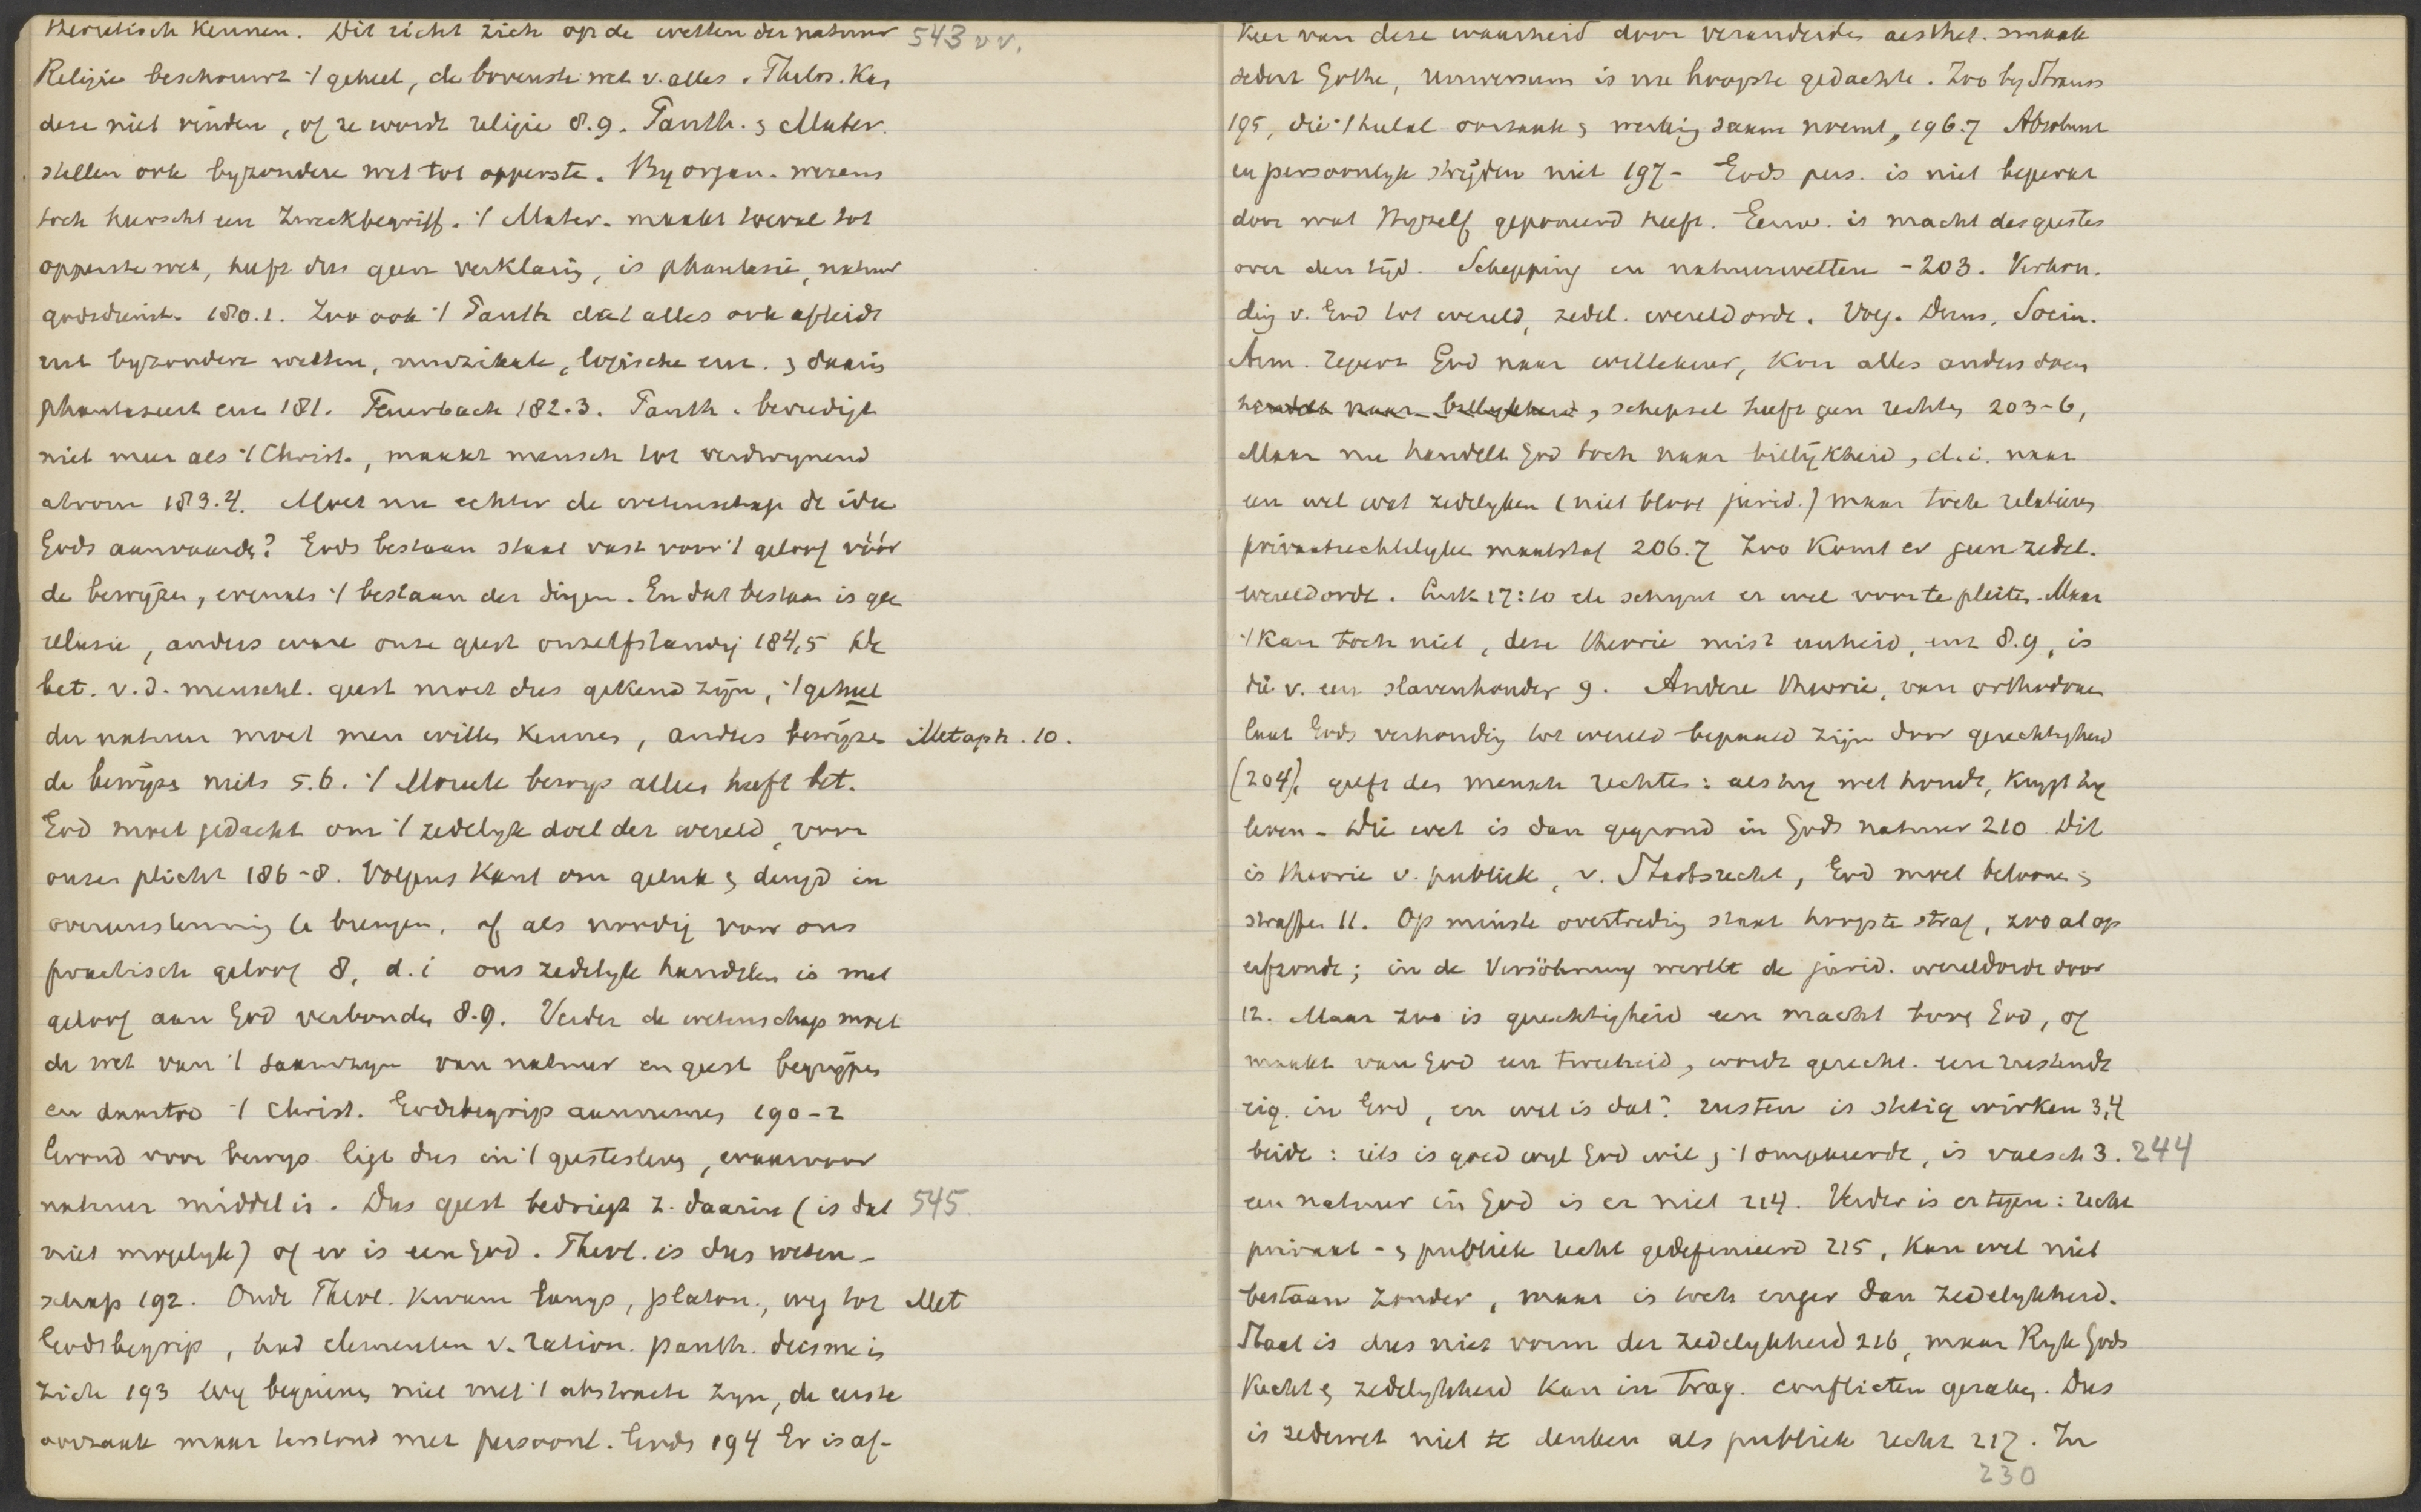 theoretisch kennen. Dit richt zich op de wetten der natuur 543 vv.
Religie beschouwt 't geheel, de bovenste wet v. alles. Philos. kan
deze niet vinden, of ze wordt religie 8.9. Panth. & Mater.
stellen ook byzondere wet tot opperste. By organ. wezens
toch heerscht een Zweckbegriff. 't Mater. maakt toeval tot
opperste wet, heeft dus geen verklaring, is phantasie, natuur
godsdienst. 180.1. Zoo ook 't Panth dat alles ook afleidt
uit byzondere wetten, muzikale, logische enz. & daarin
phantaseert enz 181. Feuerbach 182.3. Panth. bevredigt
niet meer als 't Christ., maakt mensch tot verdwynend
atroom 183.4. Moet nu echter de wetenschap de idee
Gods aanvaarden? Gods bestaan staat vast voor 't geloof vóór
de bewijzen, evenals 't bestaan der dingen. En dat bestaan is geen
illusie, anders ware onze geest onzelfstandig 184,5 De
bet. v. d. menschl. geest moet dus gekend zijn, 't geheel
der natuur moet men willen kennen, anders bewijzen Metaph. 10.
de bewijzen niets 5.6. 't Moreele bewys alleen heeft bet.
God moet gedacht om 't zedelyk doel der wereld, voor
onzen plicht 186-8. Volgens Kant om geluk & deugd in
overeenstemming te brengen, of als noodig voor ons
practisch geloof 8, d.i ons zedelyk handelen is met
geloof aan God verbonden 8.9. Verder de wetenschap moet
de wet van 't saamzyn van natuur en geest begrijpen
en daartoe 't Christ. Godsbegrip aannemen 190-2
Grond voor bewys ligt dus in 't geestesleven, waarvoor
natuur middel is. Dus geest bedriegt z. daarin (is dat 545
niet mogelyk) of er is een God. Theol. is dus weten-
schap 192. Oude Theol. kwam langs, platon., weg tot Met
Godsbegrip, had elementen v. ration. panth. deisme in
zich 193 Wy beginnen niet met 't abstracte zyn, de eerste
oorzaak maar terstond met persoonl. Gods 194 Er is af-
keer van deze waarheid door veranderden aesthet. smaak
sedert Göthe, universum is nu hoogste gedachte. Zoo by Strauss
195, die 't heelal oorzaak & werking saam noemt, 196.7 Absoluut
en persoonlyk strijden niet 197- Gods pers. is niet beperkt
door wat Hyzelf geponeerd heeft. Eeuw. is macht des geestes
over den tijd. Schepping en natuurwetten -203. Verhou-
ding v. God tot wereld, zedel. wereldorde. Volg. Duns, Socin.
Arm. regeert God naar willekeur, kon alles anders doen
handelt naar billykheid, schepsel heeft geen rechten 203-6,
Maar nu handelt God toch naar billijkheid, d.i. naar
een wel wat zedelyken (niet bloot jurid.) maar toch relatieven
privaatrechtelyken maatstaf 206.7 Zoo komt er geen zedel.
wereldorde. Luk 17:10 ele schynt er wel voor te pleiten. Maar
't kan toch niet, deze theorie mist eenheid, enz 8.9, is
die v. een slavenhouder 9. Andere theorie, van orthodoxen
laat Gods verhouding tot wereld bepaald zijn door gerechtigheid
(204), geeft den mensch rechten: als hy wet houdt, krygt hy
leven - Die wet is dan gegrond in Gods natuur 210 Dit
is theorie v. publiek, v. Staatsrecht, God moet beloonen &
straffen 11. Op minste overtreding staat hoogste straf, zoo al op
erfzonde; in de Versöhnung werkt de jurid. wereldorde door
12. Maar zoo is gerechtigheid een macht boven God, of
maakt van God een tweeheid, wordt gerecht. een rustende
eig. in God, en wat is dat? rusten is stetig wirken 3,4
beide: iets is goed wyl God wil & 't omgekeerde, is valsch 3. 244
een natuur in God is er niet 214. Verder is er tegen: recht
privaat- & publiek recht gedefinieerd 215, kan wel niet
bestaan zonder, maar is toch enger dan zedelykheid.
Staat is dus niet vorm der zedelykheid 216, maar Ryk Gods
Recht & zedelykheid kan in trag. conflicten geraken. Dus
is zedewet niet te denken als publiek recht 217. In
230